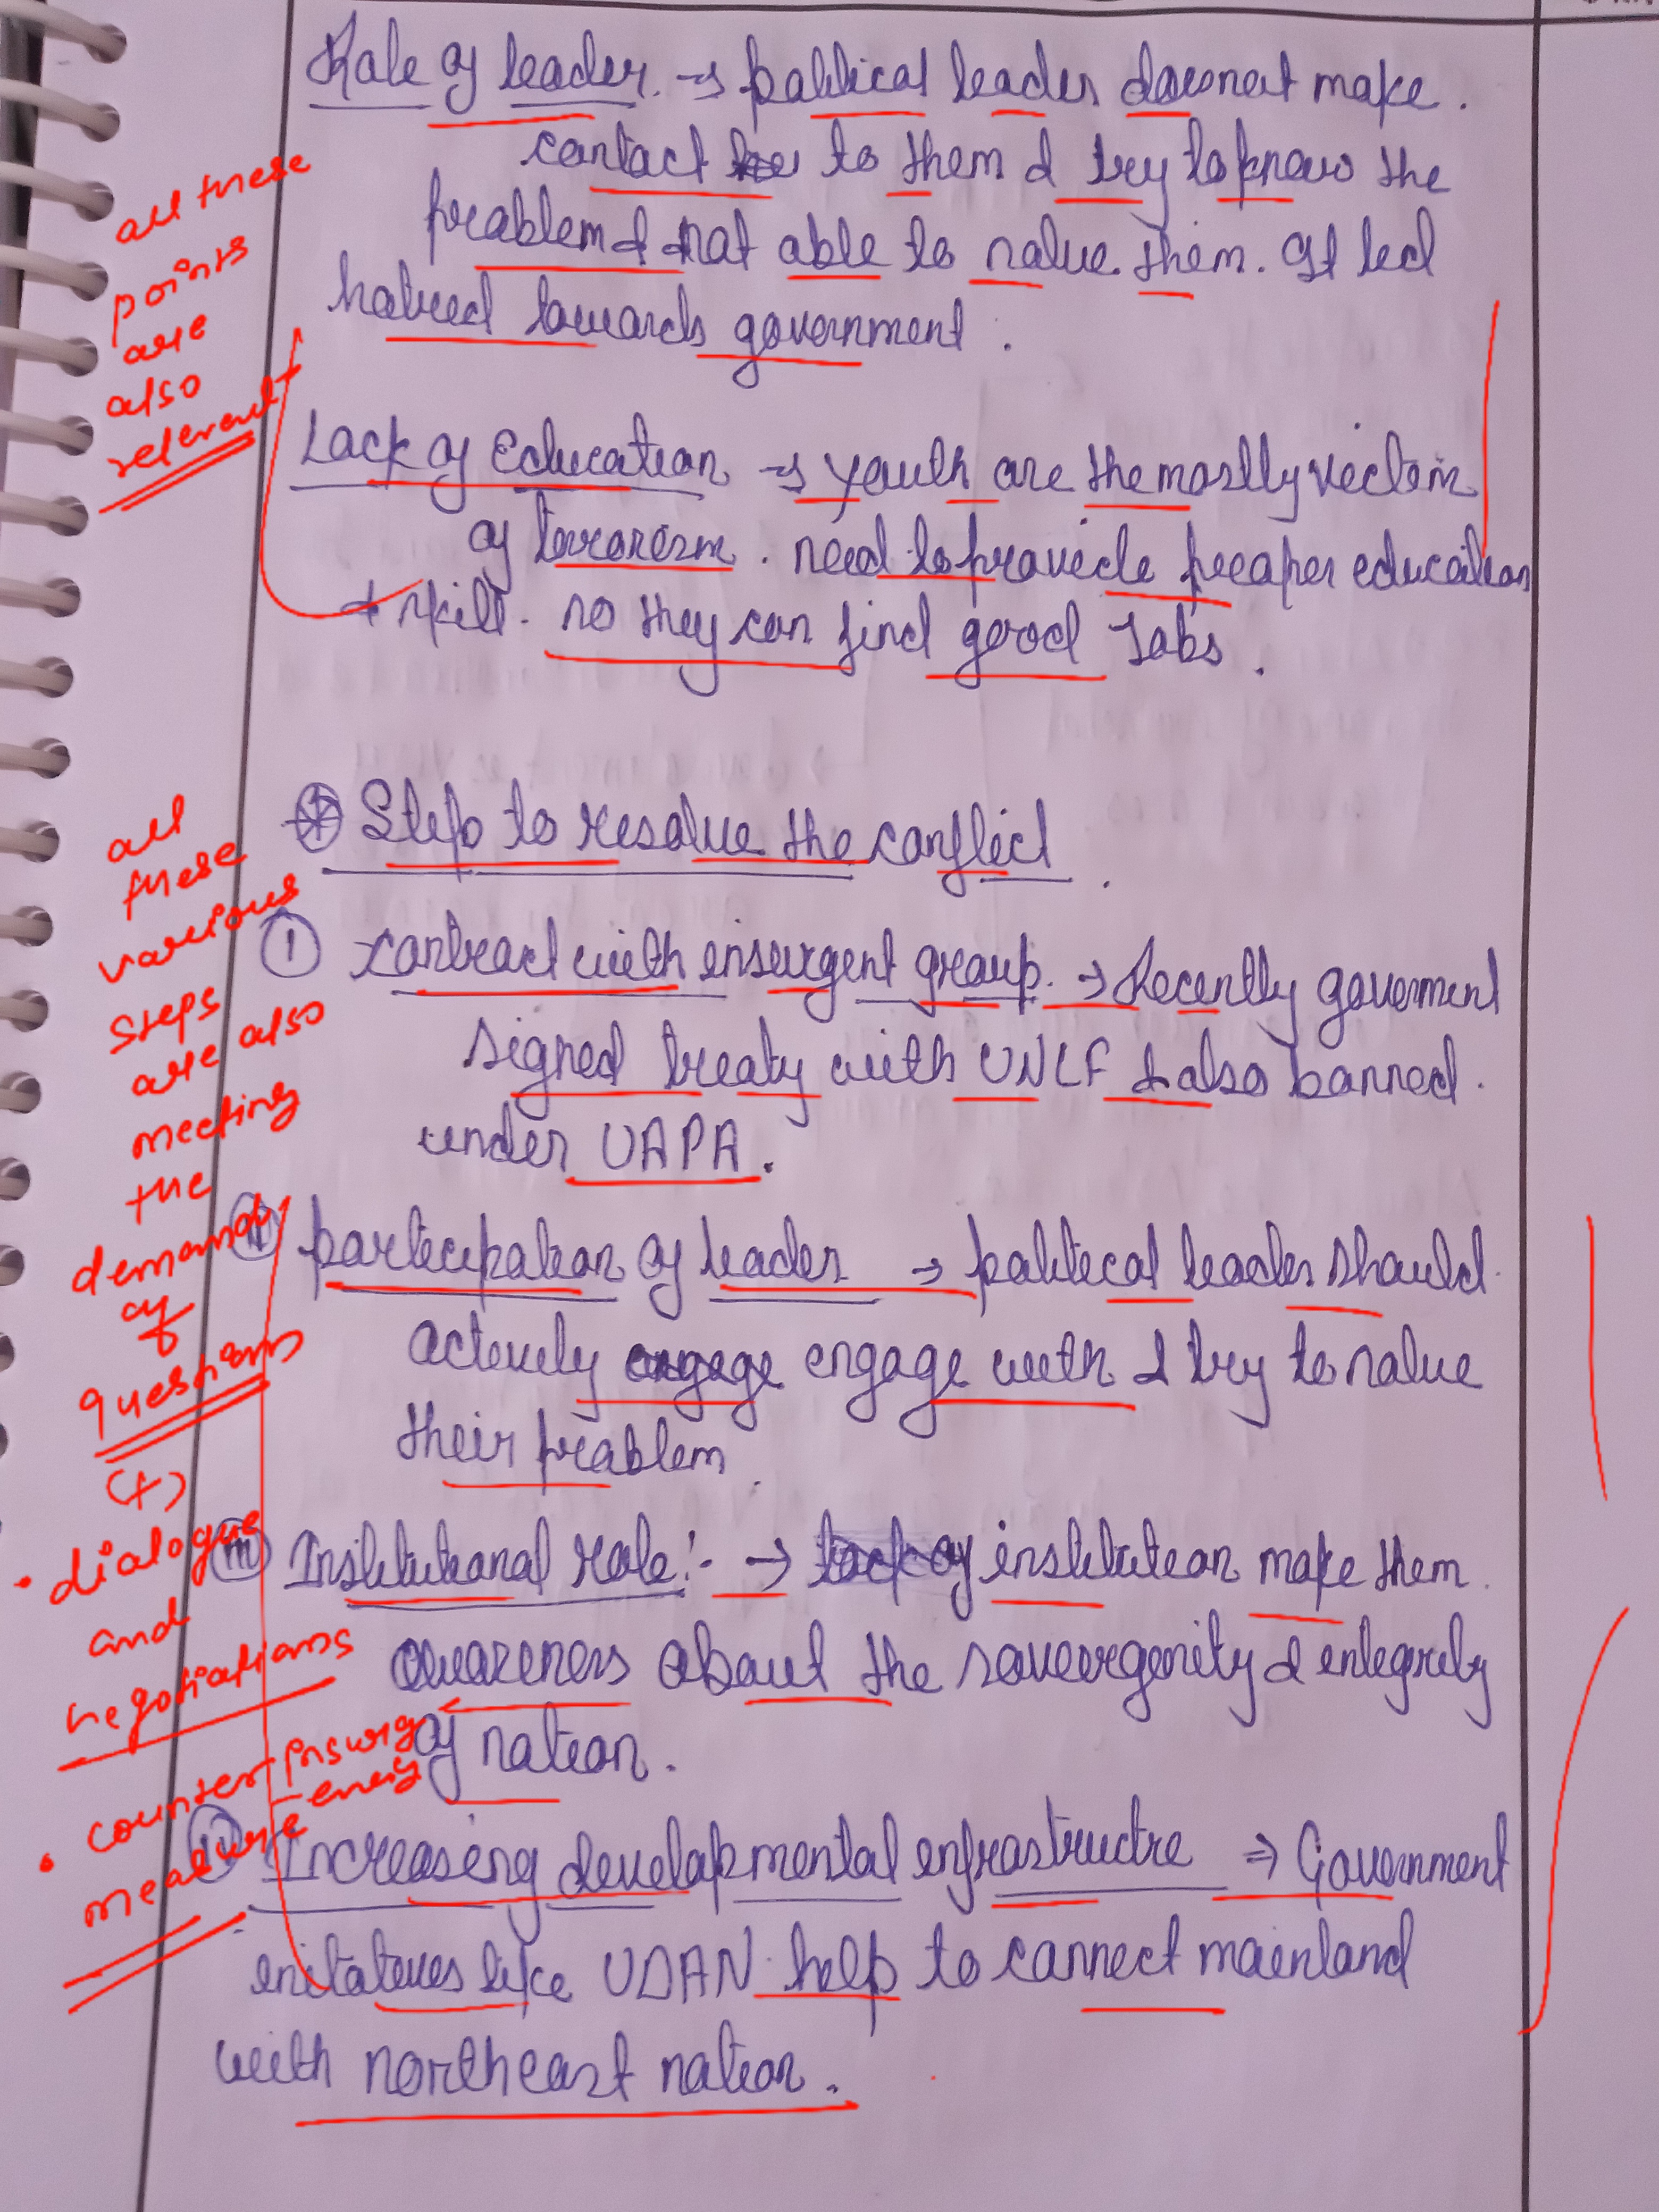 Role of leader. → political leader doesnot make.
contact to them & try to know the
problem & not able to value them. It led
hatred towards government.
all these
points
are
also
relevant
Lack of Education → youth are the mostly victim
of terrorism. need to provide proper education
& skill. so they can find good Jobs.
Step to resolve the conflict.
① contract with insurgent group. → Recently goverment
signed treaty with UNLF & also banned.
under UAPA.
all
these
various
steps
are also
meeting
the
demand
of
questions
(+)
• dialogue
and
negotiations
• counter insurg
-ency
measure
(ii) participation of leader → political leader should
actively engage engage with & try to value
their problem.
(iii) Institutional role:- → institution make them.
awareness about the soveorgenity & integrity
of nation.
(iv) Increasing developmental infrastructre ⇒ Government
initatives like UDAN help to connect mainland
with northeast nation.